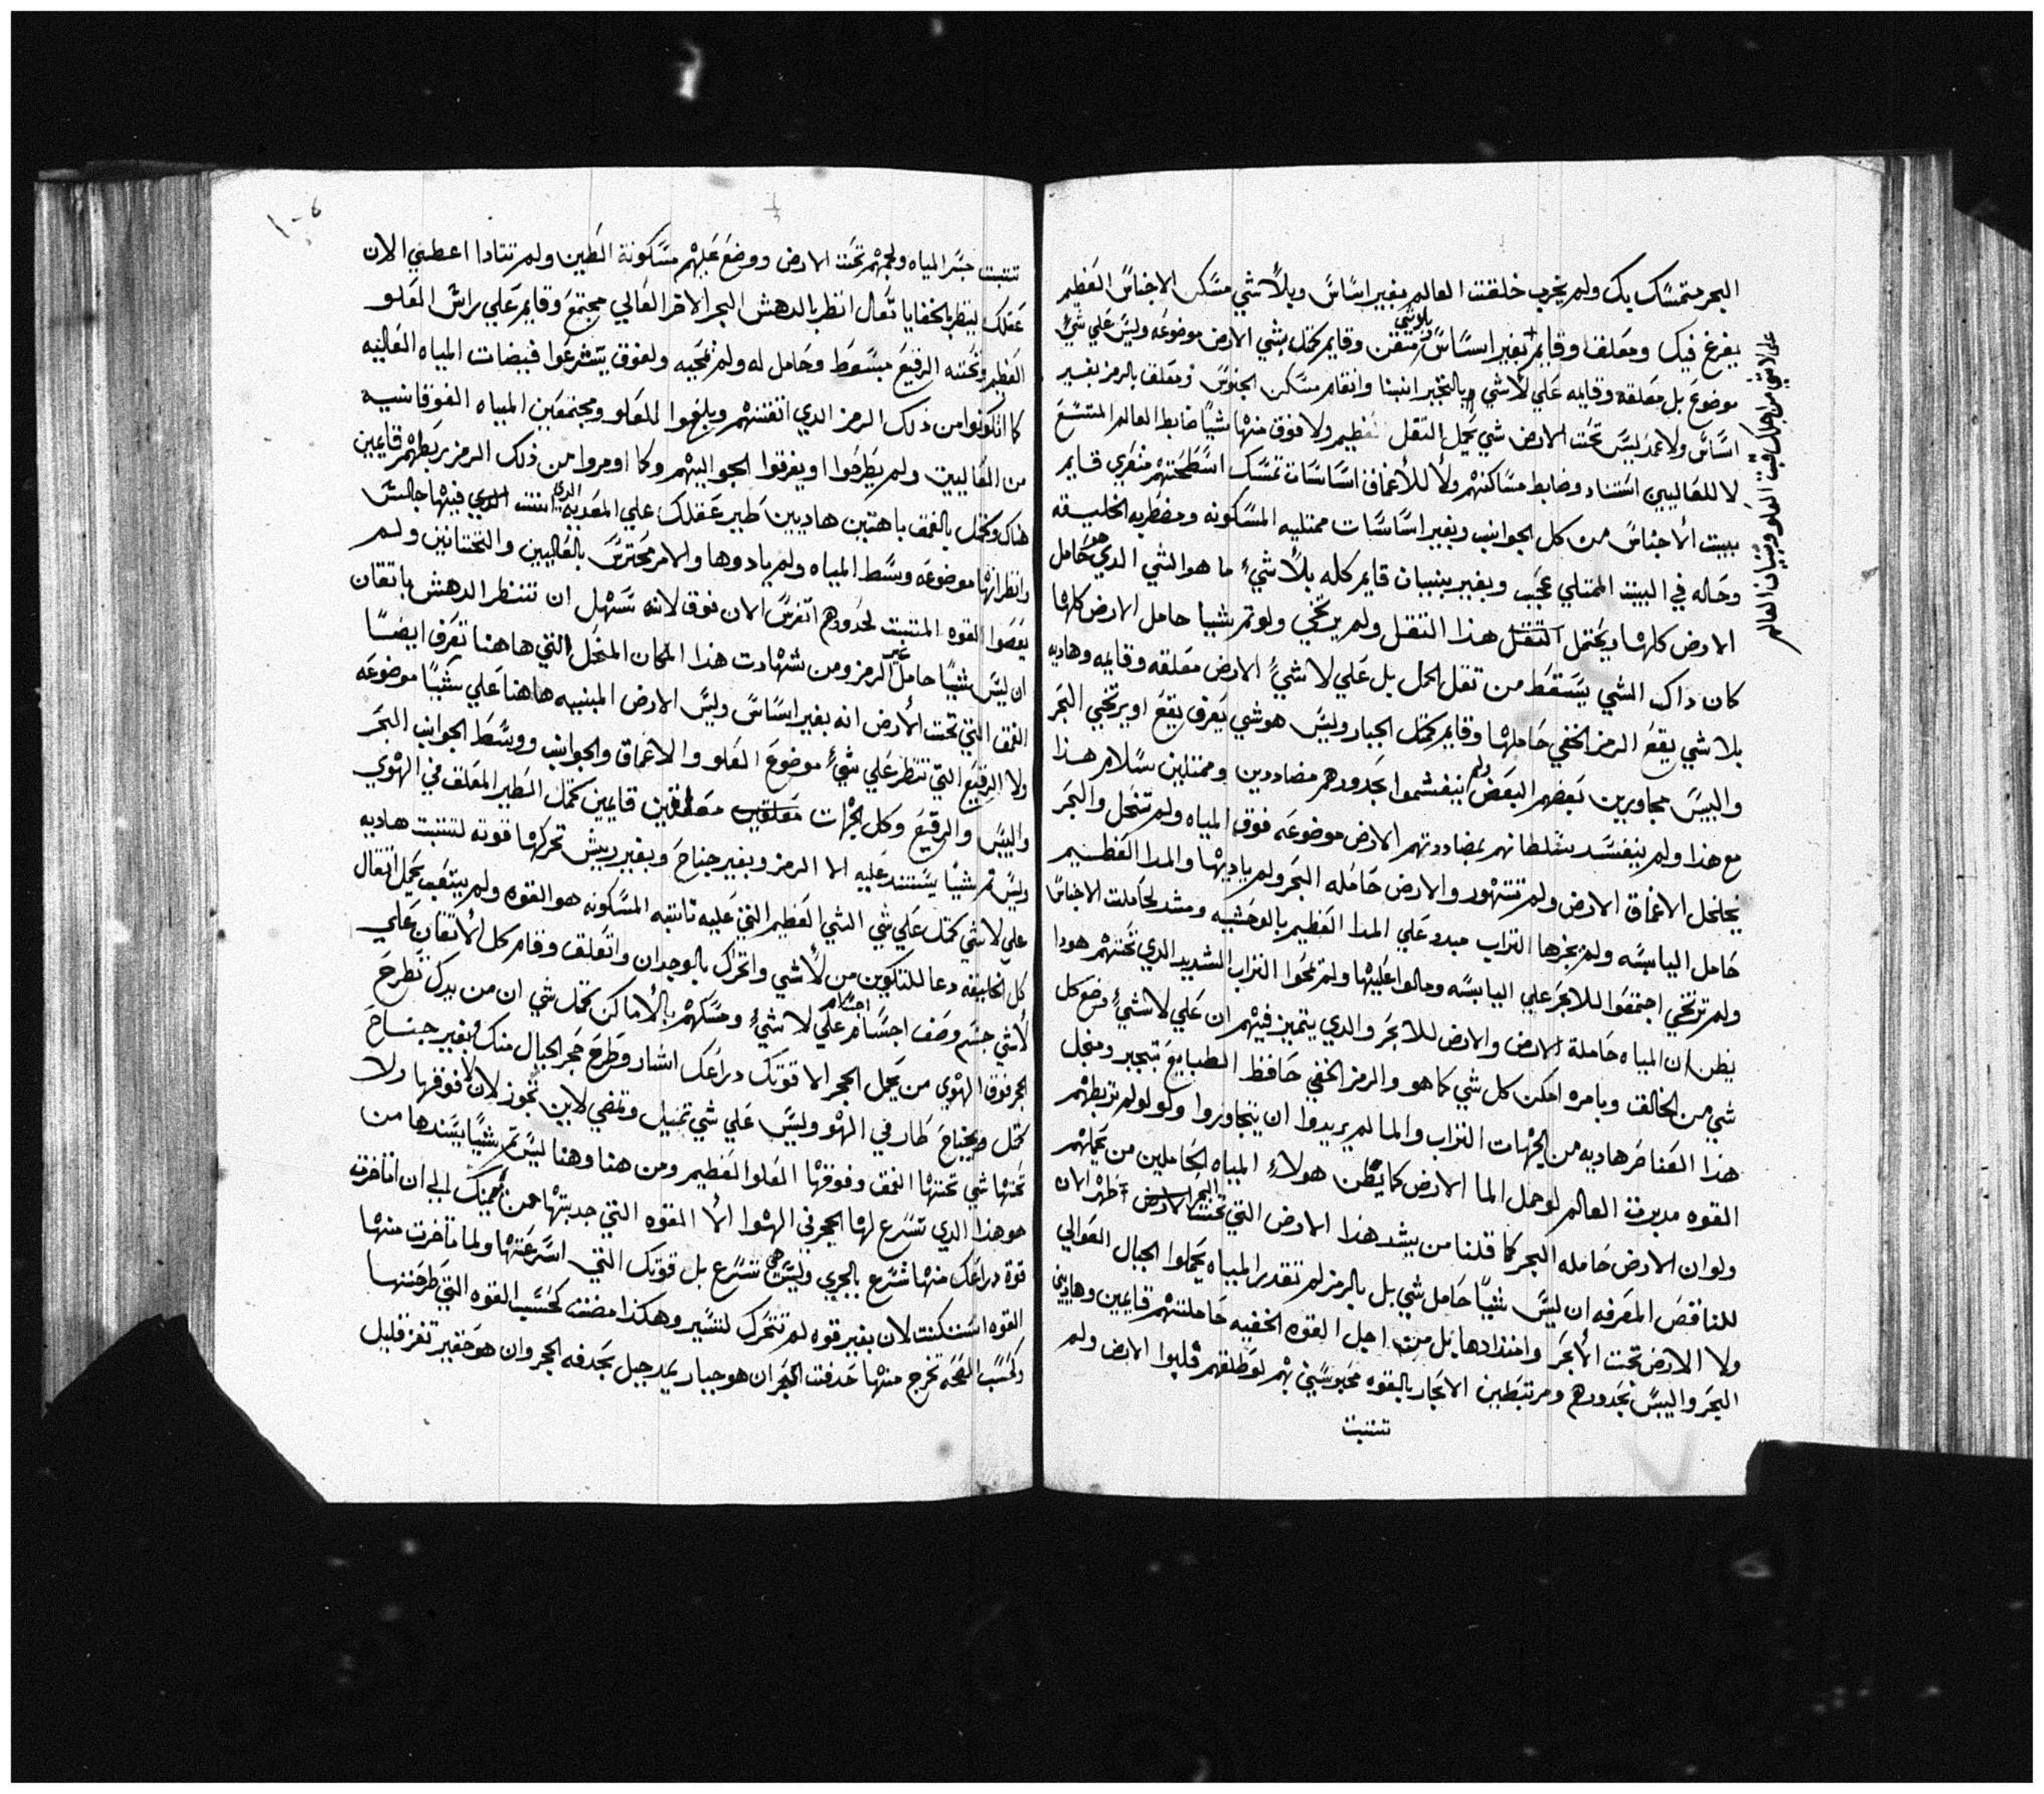 البحر متمسك بك ولم يخرب خلقت العالم بغير اساس وبلا شي مسكن الاجناس العظيم
يفرغ فيك ومعلق وقايم بغير اساس بلا شي متقن وقايم كمثل شي الارض موضوعه وليس علي شي
موضوع بل معلقه وقايمه علي لا شي وبالتخبر ابنينا وانقام مسكن الجنوس ومعلق بالرمز بغير
اساس ولا عمد ليس تحت الارض شي يحمل الثقل عظيم ولا فوق منها شيا ضابط العالم المتسع
لا للعاليين استناد وضابط مساكنهم ولا للأعماق اساسات تمسك اسطحتهم متعري قايم
ببيت الأجناس من كل الجوانب وبغير اساسات ممتليه المسكونه ومضطربه الخليقه
وحاله في البيت الممتلي عجب وبغير بنيان قايم كله بلا شي ما هو الشي الدي هو حامل
الارض كلها ويحتمل الثقل هذا الثقل ولم يرتخي ولو تم شيا حامل الارض كلها
كان داك الشي يسقط من ثقل الحمل بل علي لا شي الارض معلقه وقايمه وهاديه
بلا شي يقع الرمز الخفي حاملها وقايم كمثل الجبار وليس هو شي يعرف يقع او يرتخي البحر
واليبس مجاورين بعضهم البعض ولم ينغشموا بحدودهم مضاددين وممتلين سلام هذا
مع هذا ولم ينفسد بتغلطاتهم بمضاددتهم الارض موضوعه فوق المياه ولم تنحل والبحر
يخلخل الاعماق الارض ولم تتهور والارض حامله البحر ولم ياديها والمدا العظيم
حامل اليابسه ولم يجزها التراب مبدد علي المدا العظيم بالوحشيه ومشد لحاملت الاجناس
ولم ترتخي اجتمعوا للابحر علي اليابسه ومالوا عليها ولم تمحوا التراب الشديد الدي تحتهم هودا
يظن ان المياه حاملة الارض والارض للأبحر والدي يتميز فيهم ان علي لا شي وضع كل
شي من الخالق وبامره امكن كل شي كما هو والرمز الخفي حافظ الطبايع بتجبر ومنحل
هذا العناصر هاديه من الجهات التراب والما لم يريدوا ان يتجاوروا ولو لم تربطهم
القوه مدبرت العالم لو حمل الما الارض كما يظن هولاء المياه الحاملين من يحملهم
ولو ان الارض حامله البحر كما قلنا من يشد هذا الارض التي تحت البحر تظهر الان
للناقص المعرفه ان ليس شيا حامل شي بل بالرمز لم تقدر المياه يحملوا الجبال العوالي
ولا الارض تحت الأبحر وامتدادها بل من اجل القوه الخفيه حاملتهم قايمين وهاديين
البحر واليبس بحدودهم ومرتبطين الابحار بالقوه محبوسين بهم لو طلقهم قلبوا الارض ولم
تتثبت
علي لا شي من اجلك قبت العلو وبنيان العالم
تتثبت جسر المياه ولجمهم تحت الارض ووضع عليهم مسكونة الطين ولم تتادا اعطيني الان
عقلك لينظر بالخفايا تعال انظر بالدهش البحر الاخر العالي مجتمع وقايم علي راس العلو
العظيم وتحته الرقيع مبسوط وحامل له ولم تعجبه ولفوق يتشرعوا فيضات المياه العاليه
كما اتكونوا من ذلك الرمز الدي اتقنهم وبلغوا للعلو ومجتمعين المياه الفوقانيه
من العاليين ولم يطرحوا او يفرقوا الحواليهم وكما اومروا من ذلك الرمز ربطهم قايمين
هناك وكمثل بالعمق باهتين هاديين طير عقلك علي المعديه الدي انت فيها جالس
وانظر انها موضوعه وسط المياه ولم يادوها والامر محترس بالعاليين والتحتانيين ولم
يعصوا القوه المثبت لحدودهم اتفرس الان فوق لانه تسهل ان تنظر الدهش باتقان
ان ليس شيا حامل غير الرمز ومن شهادت هذا المكان المنحل التي هاهنا تعرف ايضا
العمق التي تحت الأرض انه بغير اساس وليس الارض المبنيه هاهنا علي شيا موضوعه
ولا الرقيع التي تنظر علي شي موضوع العلو والاعماق والجوانب ووسط الجوانب البحر
واليبس والرقيع وكل الجهات معلقين قايمين كمثل الطير المعلق في الهوي
وليس تم شيا يستند عليه الا الرمز وبغير جناح وبغير ريش تحركها قوته لتثبت هاديه
علي لا شي كمثل علي شي الشي العظيم التي عليه ثابته المسكونه هو القوه ولم يتعب بحمل اثقال
كل الخليقه دعا للتكوين من لأ شي واتحرك بالوجدان واتعلق وقام كل الأتقان علي
لأ شي جسم وصف اجسام علي لا شي ومسكهم بالأماكن كمثل شي ان من يدك تطرح
الحجر فوق الهوي من يحمل الحجر الا قوتك دراعك اشار وطرح حجر الجبال منك وبغير جناح
كمثل وبجناح طار في الهو وليس علي شي تميل وتمضي لاين تجوز لان لا فوقها ولا
تحتها شي تحتها العمق وفوقها العلو العظيم ومن هنا وهنا ليس تم شيا يسندها من
هو هذا الدي تسرع لها الحجر في الهوا ألا القوه التي جدبتها من يمينك الي ان اتاخرت
قوة دراعك منها تسرع بالجري وليس هي تسرع بل قوتك التي اسرعتها ولما تاخرت منها
القوه استكنت لان بغير قوه لم تتحرك لتسير وهكذا مضت كحسب القوه التي طرحتها
وكحسب القحه تخرج منها حدفت الحجر ان هو جبار بمد جبل بحدفه الحجر وان هو حقير تغز قليل